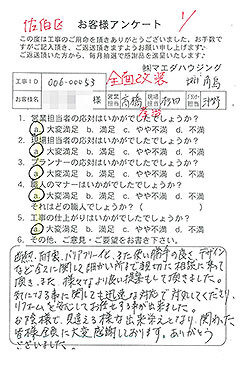 佐伯区
お客様アンケート
1/
この度は工事のご用命を頂きありがとうございました。お手数で
すがご記入頂き、ご返送頂きますようお願い申し上げます。
ご返送頂いた方から、毎月抽選で感謝品を進呈いたします。
㈱マエダハウジング
工事ID 006-00053 全面改装
お客様名 様 営業担当 高橋 現場担当 杉田
1. 営業担当者の応対はいかがでしたでしょうか?
a 大変満足 b. 満足 c. やや不満 d. 不満
2. 現場担当者の応対はいかがでしたでしょうか?
a 大変満足 b. 満足 c. やや不満 d. 不満
3. プランナーの応対はいかがでしたでしょうか?
a 大変満足 b. 満足 c. やや不満 d. 不満
4. 職人のマナーはいかがでしたでしょうか?
a 大変満足 b. 満足 c. やや不満 d. 不満
それはどの職人でしょうか?( )
5. 工事の仕上がりはいかがでしたでしょうか?
a 大変満足 b. 満足 c. やや不満 d. 不満
6. その他、ご意見・ご要望をお書き下さい。
断熱、耐震、バリアフリー化、また使い勝手の良さ、デザイン
など全てに関して細かい所まで親切に相談に乗って
頂き、また、様々なより良い提案もして頂きました。
気になる事に関しても迅速な対応で対処してくださり、
リフォームを安心してお任せする事が出来ました。
お陰様で、見違える様な出来栄えとなり、関わった
皆様全員に大変感謝しております。ありがとう
ございました。